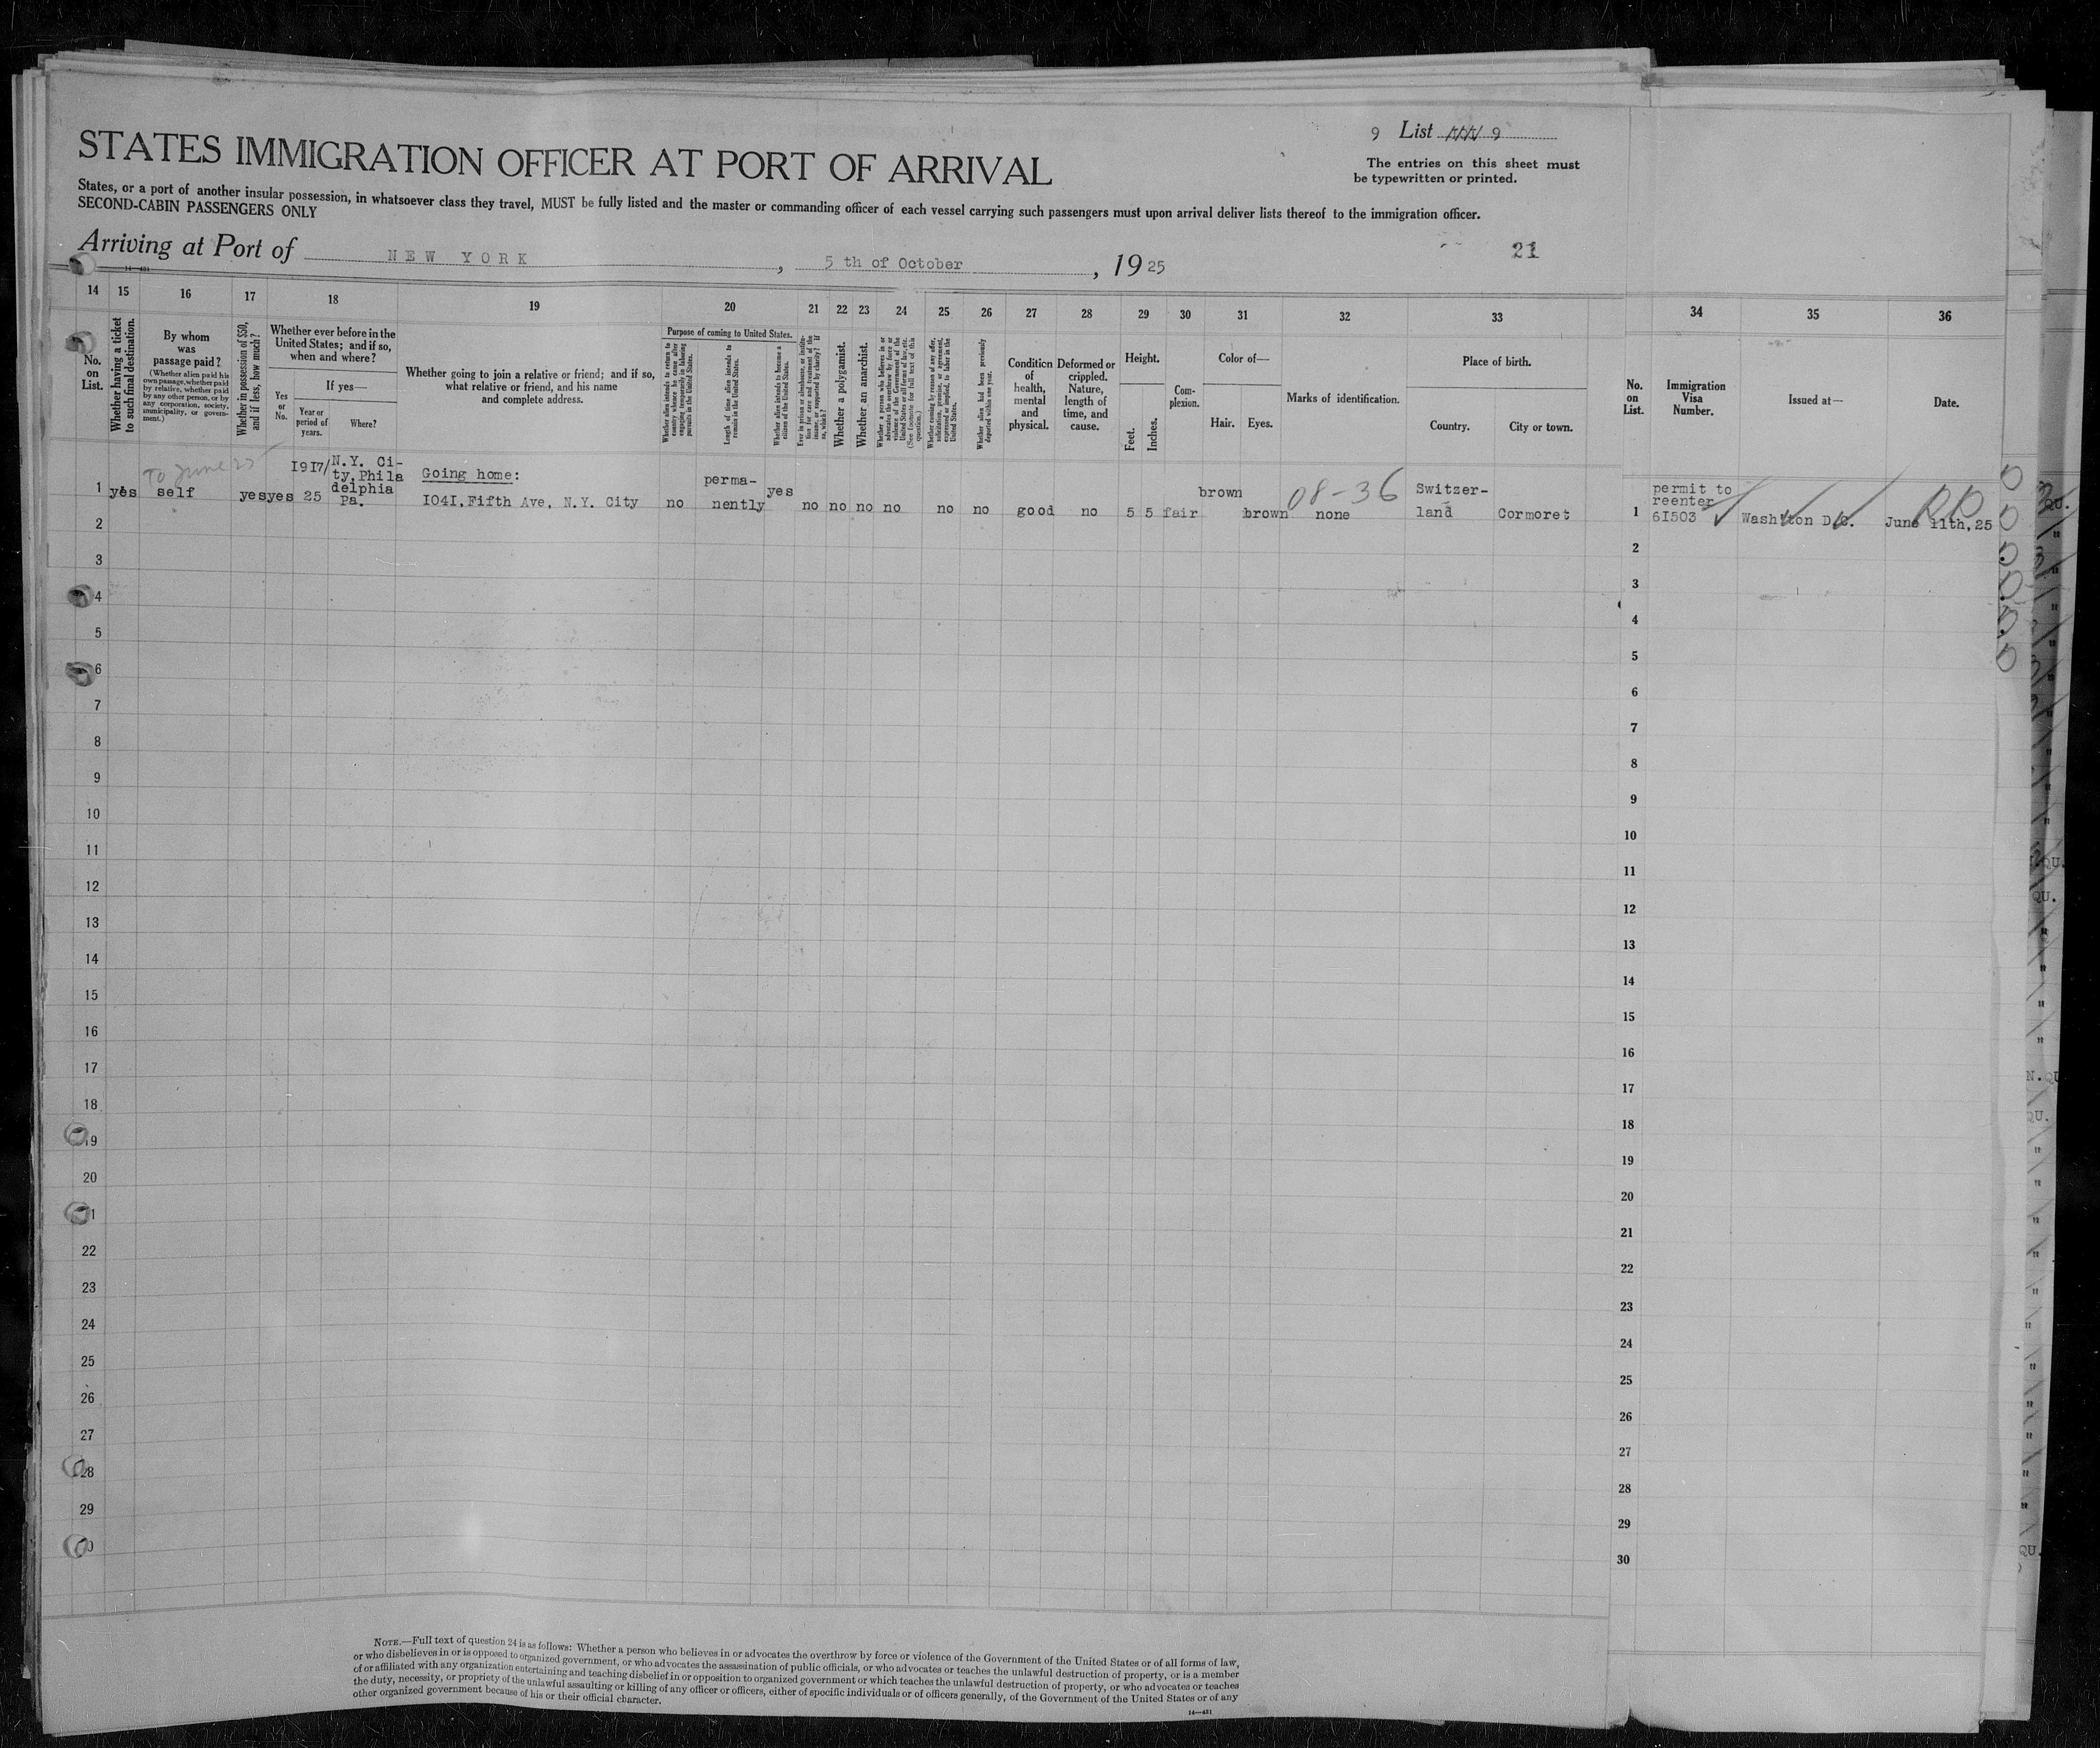 9 List 9
STATES IMMIGRATION OFFICER AT PORT OF ARRIVAL
The entries on this sheet must
be typewritten or printed.
States, or a port of another insular possession, in whatsoever class they travel, MUST be fully listed and the master or commanding officer of each vessel carrying such passengers must upon arrival deliver lists thereof to the immigration officer.
SECOND-CABIN PASSENGERS ONLY
Arriving at Port of NEW YORK, 5 th of October, 1925
21
14—431
14 15 16 17 18 19 20 21 22 23 24 25 26 27 28 29 30 31 32 33 34 35 36
No. on List.
Whether having a ticket to such final destination.
By whom was passage paid?
(Whether alien paid his own passage, whether paid by relative, whether paid by any other person, or by any corporation, society, municipality, or government.)
Whether in possession of $50, and if less, how much?
Whether ever before in the United States; and if so, when and where?
Yes or No.
If yes—
Year or period of years.
Where?
Whether going to join a relative or friend; and if so, what relative or friend, and his name and complete address.
Purpose of coming to United States.
Whether alien intends to return to country whence he came after engaging temporarily in laboring pursuits in the United States.
Length of time alien intends to remain in the United States.
Whether alien intends to become a citizen of the United States.
Ever in prison or almshouse, or institution for care and treatment of the insane, or supported by charity? If so, which?
Whether a polygamist.
Whether an anarchist.
Whether a person who believes in or advocates the overthrow by force or violence of the Government of the United States or all forms of law, etc. (See footnote for full text of this question.)
Whether coming by reason of any offer, solicitation, promise, or agreement, expressed or implied, to labor in the United States.
Whether alien had been previously deported within one year.
Condition of health, mental and physical.
Deformed or crippled. Nature, length of time, and cause.
Height.
Feet.
Inches.
Complexion.
Color of—
Hair. Eyes.
Marks of identification.
Place of birth.
Country. City or town.
No. on List.
Immigration Visa Number.
Issued at—
Date.
To June 25
1 yes self yes yes 1917/25 N.Y. City, Philadelphia Pa. Going home: 1041, Fifth Ave, N.Y. City no permanently yes no no no no no no good no 5 5 fair brown brown 08-36 none Switzerland Cormoret 1 permit to reenter 61503 Wash'ton D.C. June 11th, 25
2 2
3 3
4 4
5 5
6 6
7 7
8 8
9 9
10 10
11 11
12 12
13 13
14 14
15 15
16 16
17 17
18 18
19 19
20 20
1 21
22 22
23 23
24 24
25 25
26 26
27 27
28 28
29 29
30
NOTE.—Full text of question 24 is as follows: Whether a person who believes in or advocates the overthrow by force or violence of the Government of the United States or of all forms of law,
or who disbelieves in or is opposed to organized government, or who advocates the assassination of public officials, or who advocates or teaches the unlawful destruction of property, or is a member
of or affiliated with any organization entertaining and teaching disbelief in or opposition to organized government or which teaches the unlawful destruction of property, or who advocates or teaches
the duty, necessity, or propriety of the unlawful assaulting or killing of any officer or officers, either of specific individuals or of officers generally, of the Government of the United States or of any
other organized government because of his or their official character.
14—431